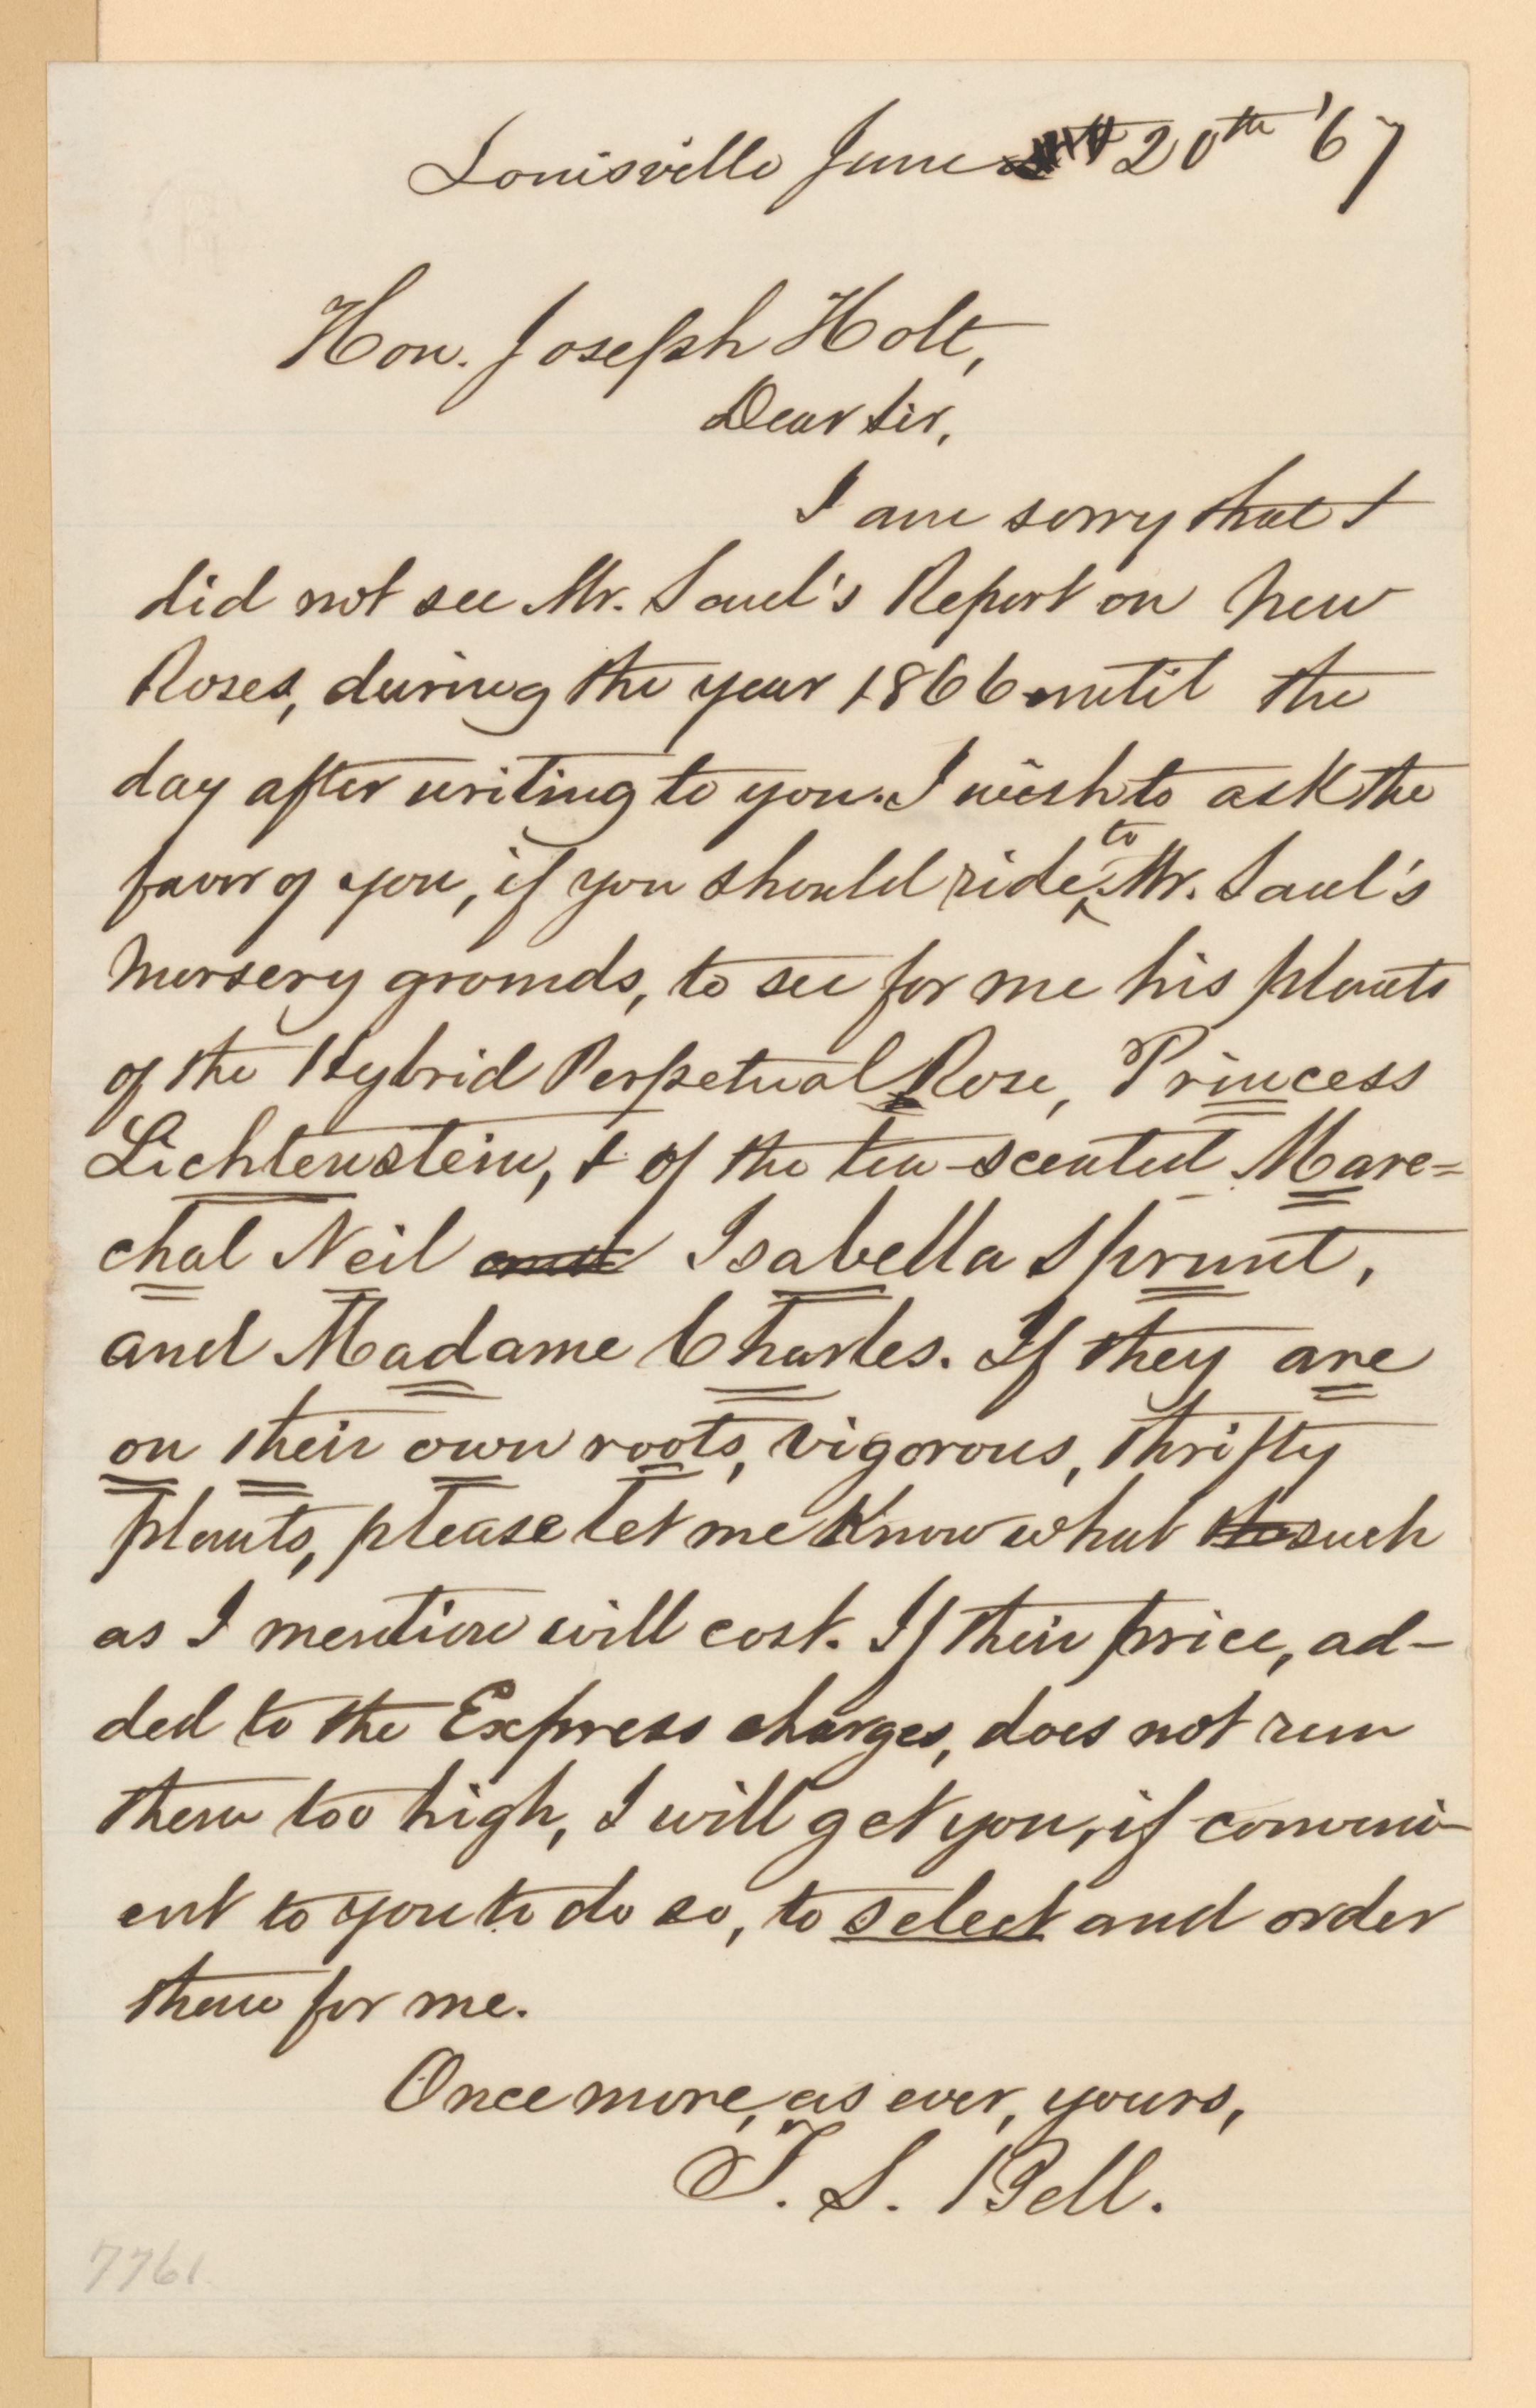 Louisville June 20th '67
Hon. Joseph Holt,
Dear Sir,
I am sorry that I
did not see Mr. Saul's Report on New
Roses, during the year 1866 until the
day after writing to you. I wish to ask the
favor of you, if you should ride to Mr. Saul's
Nursery grounds, to see for me his plants
of the Hybrid Perpetual Rose, Princess
Lichtenstein, & of the tea-scented Mare=
chal Neil and Isabella Sprunt,
and Madame Charles. If they are
on their own roots, vigorous, thrifty
plants, please let me know what the such
as I mention will cost. If their price, ad-
ded to the Express charges, does not run
them too high, I will get you, if conveni-
ent to you to do so, to select and order
them for me.
Once more, as ever, yours,
T. S. Bell.
7761